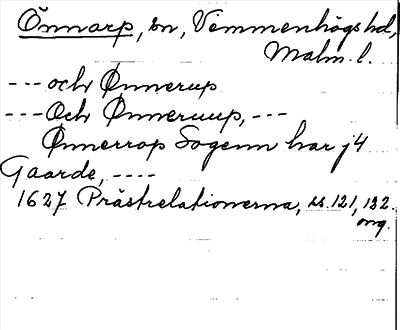 Önnarp, sn, Vemmenhögs hd,
Malm. l.
--- och Ønnerup
--- Och Ønneruup, ---
Ønnerrop Sogenn har j4
Gaarde, ----
1627 Prästrelationerna, ss. 121, 132.
orig.